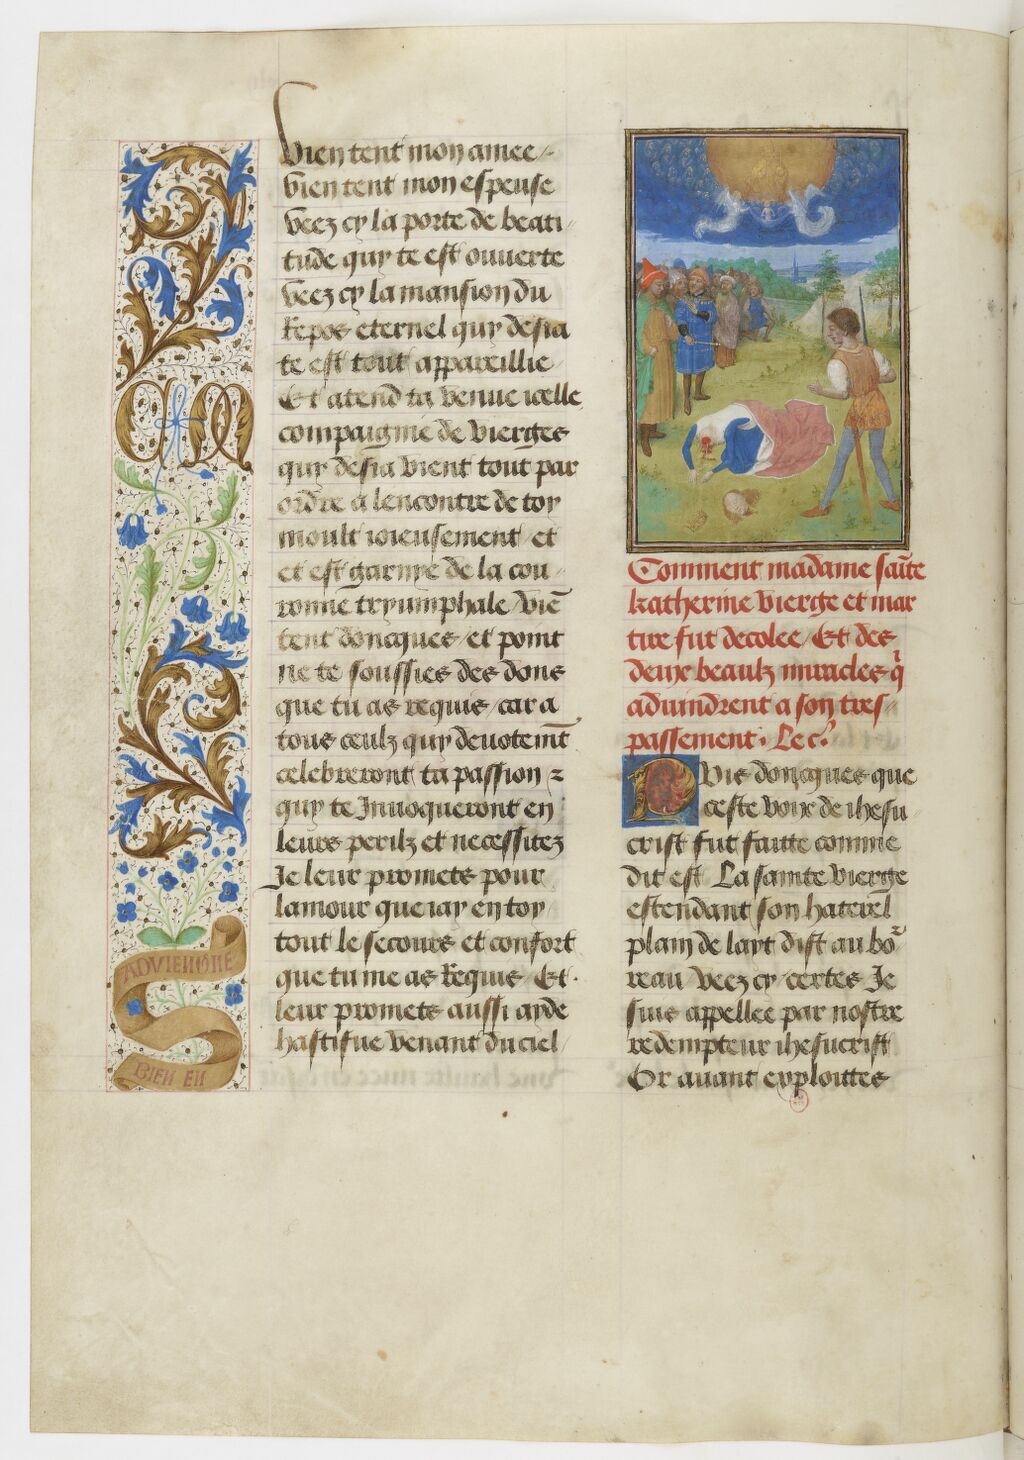 Vien tent mon amee
Vien tent mon espeuse
Veez cy la porte de beati
tude quy te est ouuerte
Veez cy la mansion du
Repos eternel quy desia
te est tout appareillie
Et atend ta venue icelle
compaignie de vierges
quy desia vient tout par
ordre a lencontre de toy
moult ioieusement et
et est garnye de la cou
ronne tryumphale viē
tent doncques et point
ne te soussies des dons
que tu as requis car a
tous ceulz quy deuotemt
celebreront ta passion &
quy te Inuoqueront en
leurs perilz et necessitez
Je leur promets pour
lamour que iay en toy
tout le secours et confort
que tu me as Requis Et
leur promets aussi ayde
hastifue venant du ciel
Comment madame saīte
katherine vierge et mar
tire fut decolee Et des
deux beaulz miracles q̄
aduindrent a son tres
passement. Le c.
Puis doncques que
ceste voix de ihesu
crist fut faitte comme
dit est La sainte vierge
estendant son haterel
plain de layt dist au bo
reau Veez cy certes Je
suis appellee par nostre
redempteur ihesucrist
Or auant exploittes
ADVIENGNE
BIEN EN